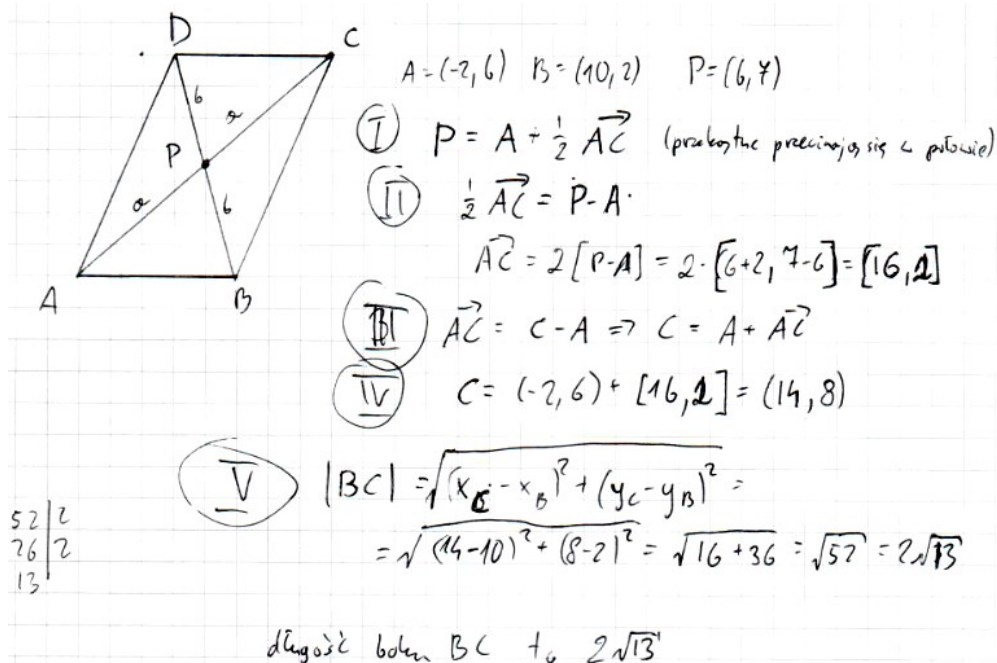 D C
A = (-2, 6) B = (10, 2) P = (6, 7)
b a
I P = A + ½ AC→ (przekątne przecinają się w połowie)
P
a b
II ½ AC→ = P - A
AC→ = 2[P-A] = 2·[6+2, 7-6] = [16, 2]
A B
III AC→ = C - A => C = A + AC→
IV C = (-2, 6) + [16, 2] = (14, 8)
V |BC| = √((x_C - x_B)² + (y_C - y_B)²) =
= √((14-10)² + (8-2)²) = √(16 + 36) = √52 = 2√13
52 | 2
26 | 2
13 |
długość boku BC to 2√13